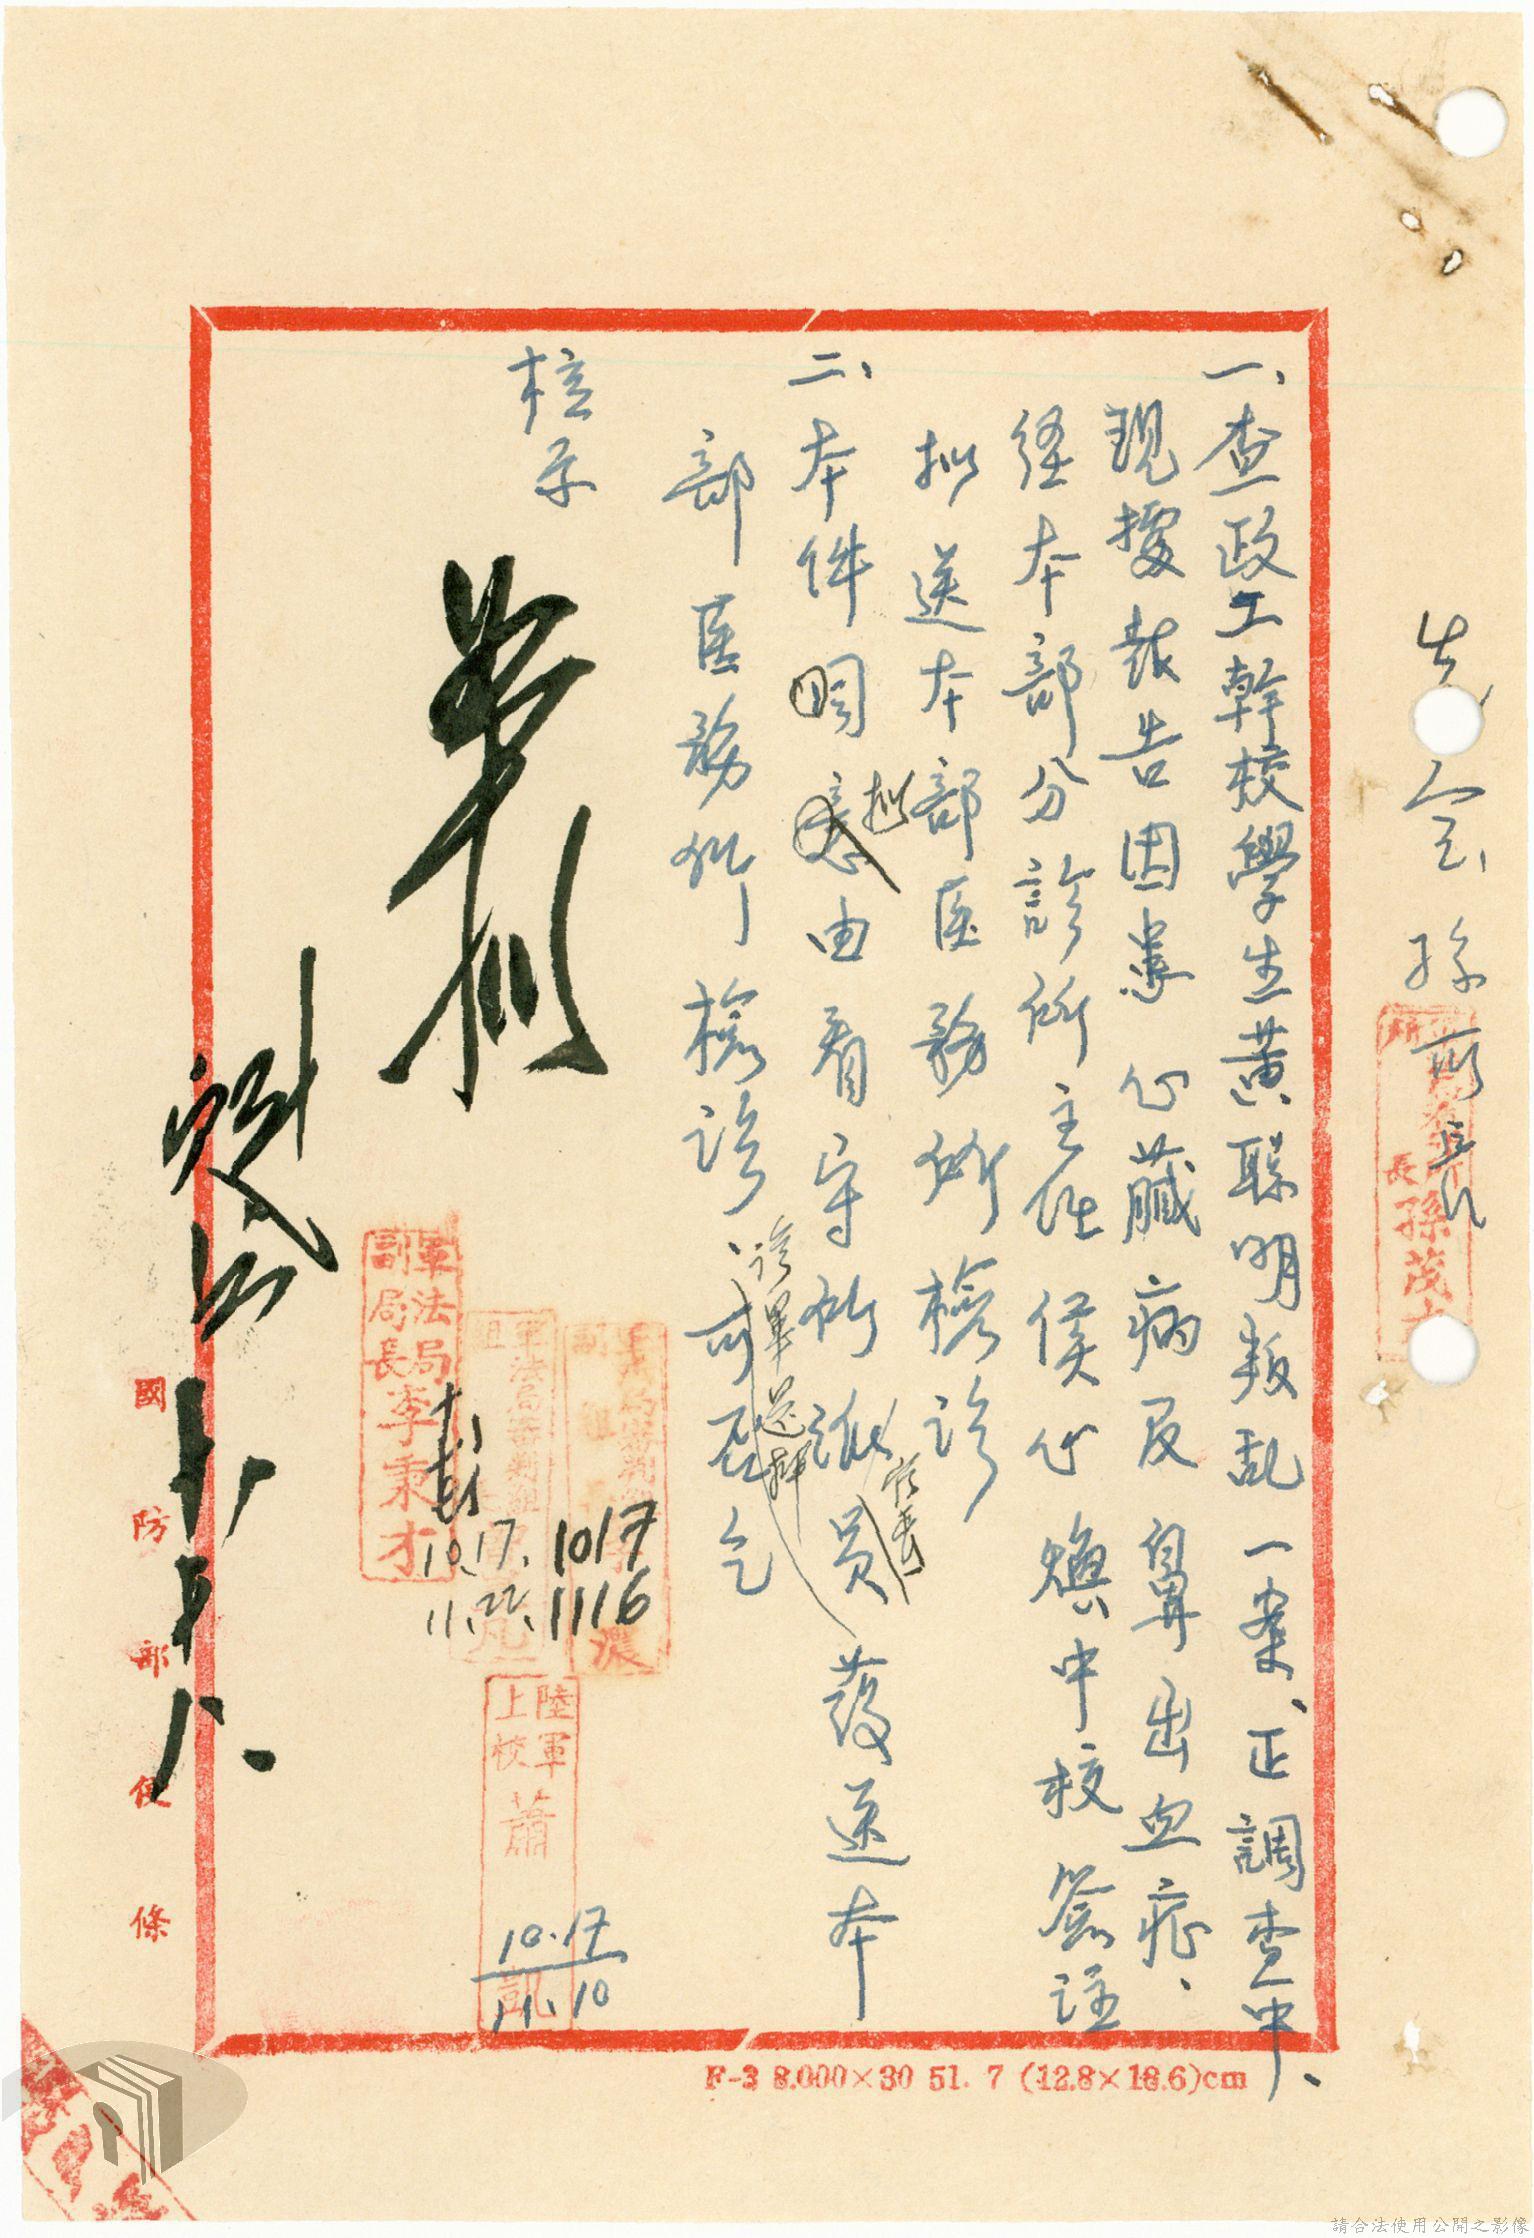 先會孫所長
長孫茂
一、查政工幹校學生黃聯明叛乱一案、正調查中、
現據報告因患心臟病及鼻出血症、
經本部分診所主任侯心煥中校簽註
拟送本部医務所檢診
二、本件拟由看守所派員護送本
部医務所檢診、診畢送押可否乞
核示
軍法局
副局長李秉才
10.17.
11.22.
1017
1116
陸軍
上校蕭凱
10.17
11.10
國防部便條
F-3 8.000×30 51. 7 (12.8×18.6)cm
請合法使用公開之影像